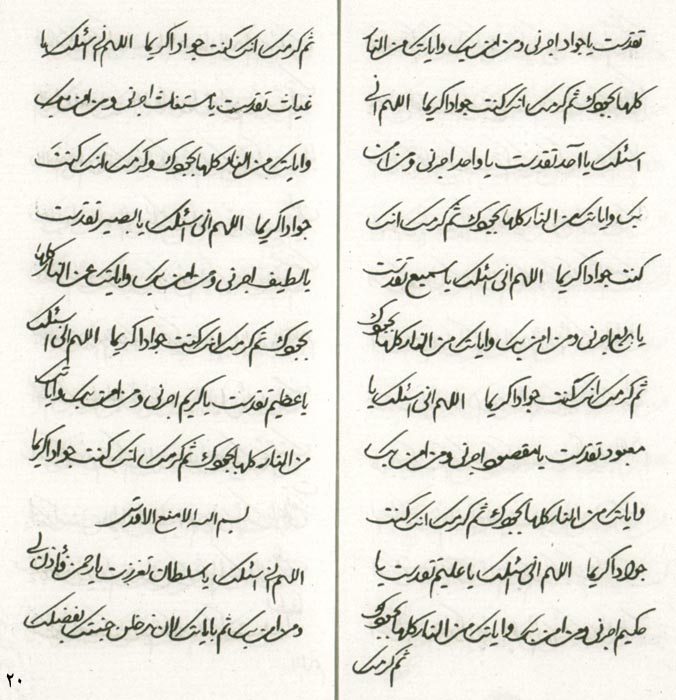 تقدست یا جواد اجرنی و من امن بک و ایاتک من النار
کلها بجودک ثم کرمک انک کنت جوادا کریما اللهم انی
اسئلک یا احد تقدست یا واحد اجرنی و من امن
بک و ایاتک من النار کلها بجودک ثم کرمک انک
کنت جوادا کریما اللهم انی اسئلک یا سمیع تقدست
یا بدیع اجرنی و من امن بک و ایاتک من النار کلها بجودک
ثم کرمک انک کنت جوادا کریما اللهم انی اسئلک یا
معبود تقدست یا مقصود اجرنی و من امن بک
و ایاتک من النار کلها بجودک ثم کرمک انک کنت
جوادا کریما اللهم انی اسئلک یا علیم تقدست یا
حکیم اجرنی و من امن بک و ایاتک من النار کلها بجودک
ثم کرمک
ثم کرمک انک کنت جوادا کریما اللهم انی اسئلک یا
غیاث تقدست یا مستغاث اجرنی و من امن بک
و ایاتک من النار کلها بجودک و کرمک انک کنت
جوادا کریما اللهم انی اسئلک یا بصیر تقدست
یا لطیف اجرنی و من امن بک و ایاتک عن النار کلها
بجودک ثم کرمک انک کنت جوادا کریما اللهم انی اسئلک
یا عظیم تقدست یا کریم اجرنی و من امن بک و ایاتک
من النار کلها بجودک ثم کرمک انک کنت جوادا کریما
بسم الله الامنع الاقدس
اللهم انی اسئلک یا سلطان تعززت یا رحمن فأذن لی
و من امن بک ثم بایاتک لان ندخلن جنتک بفضلک
٢٠